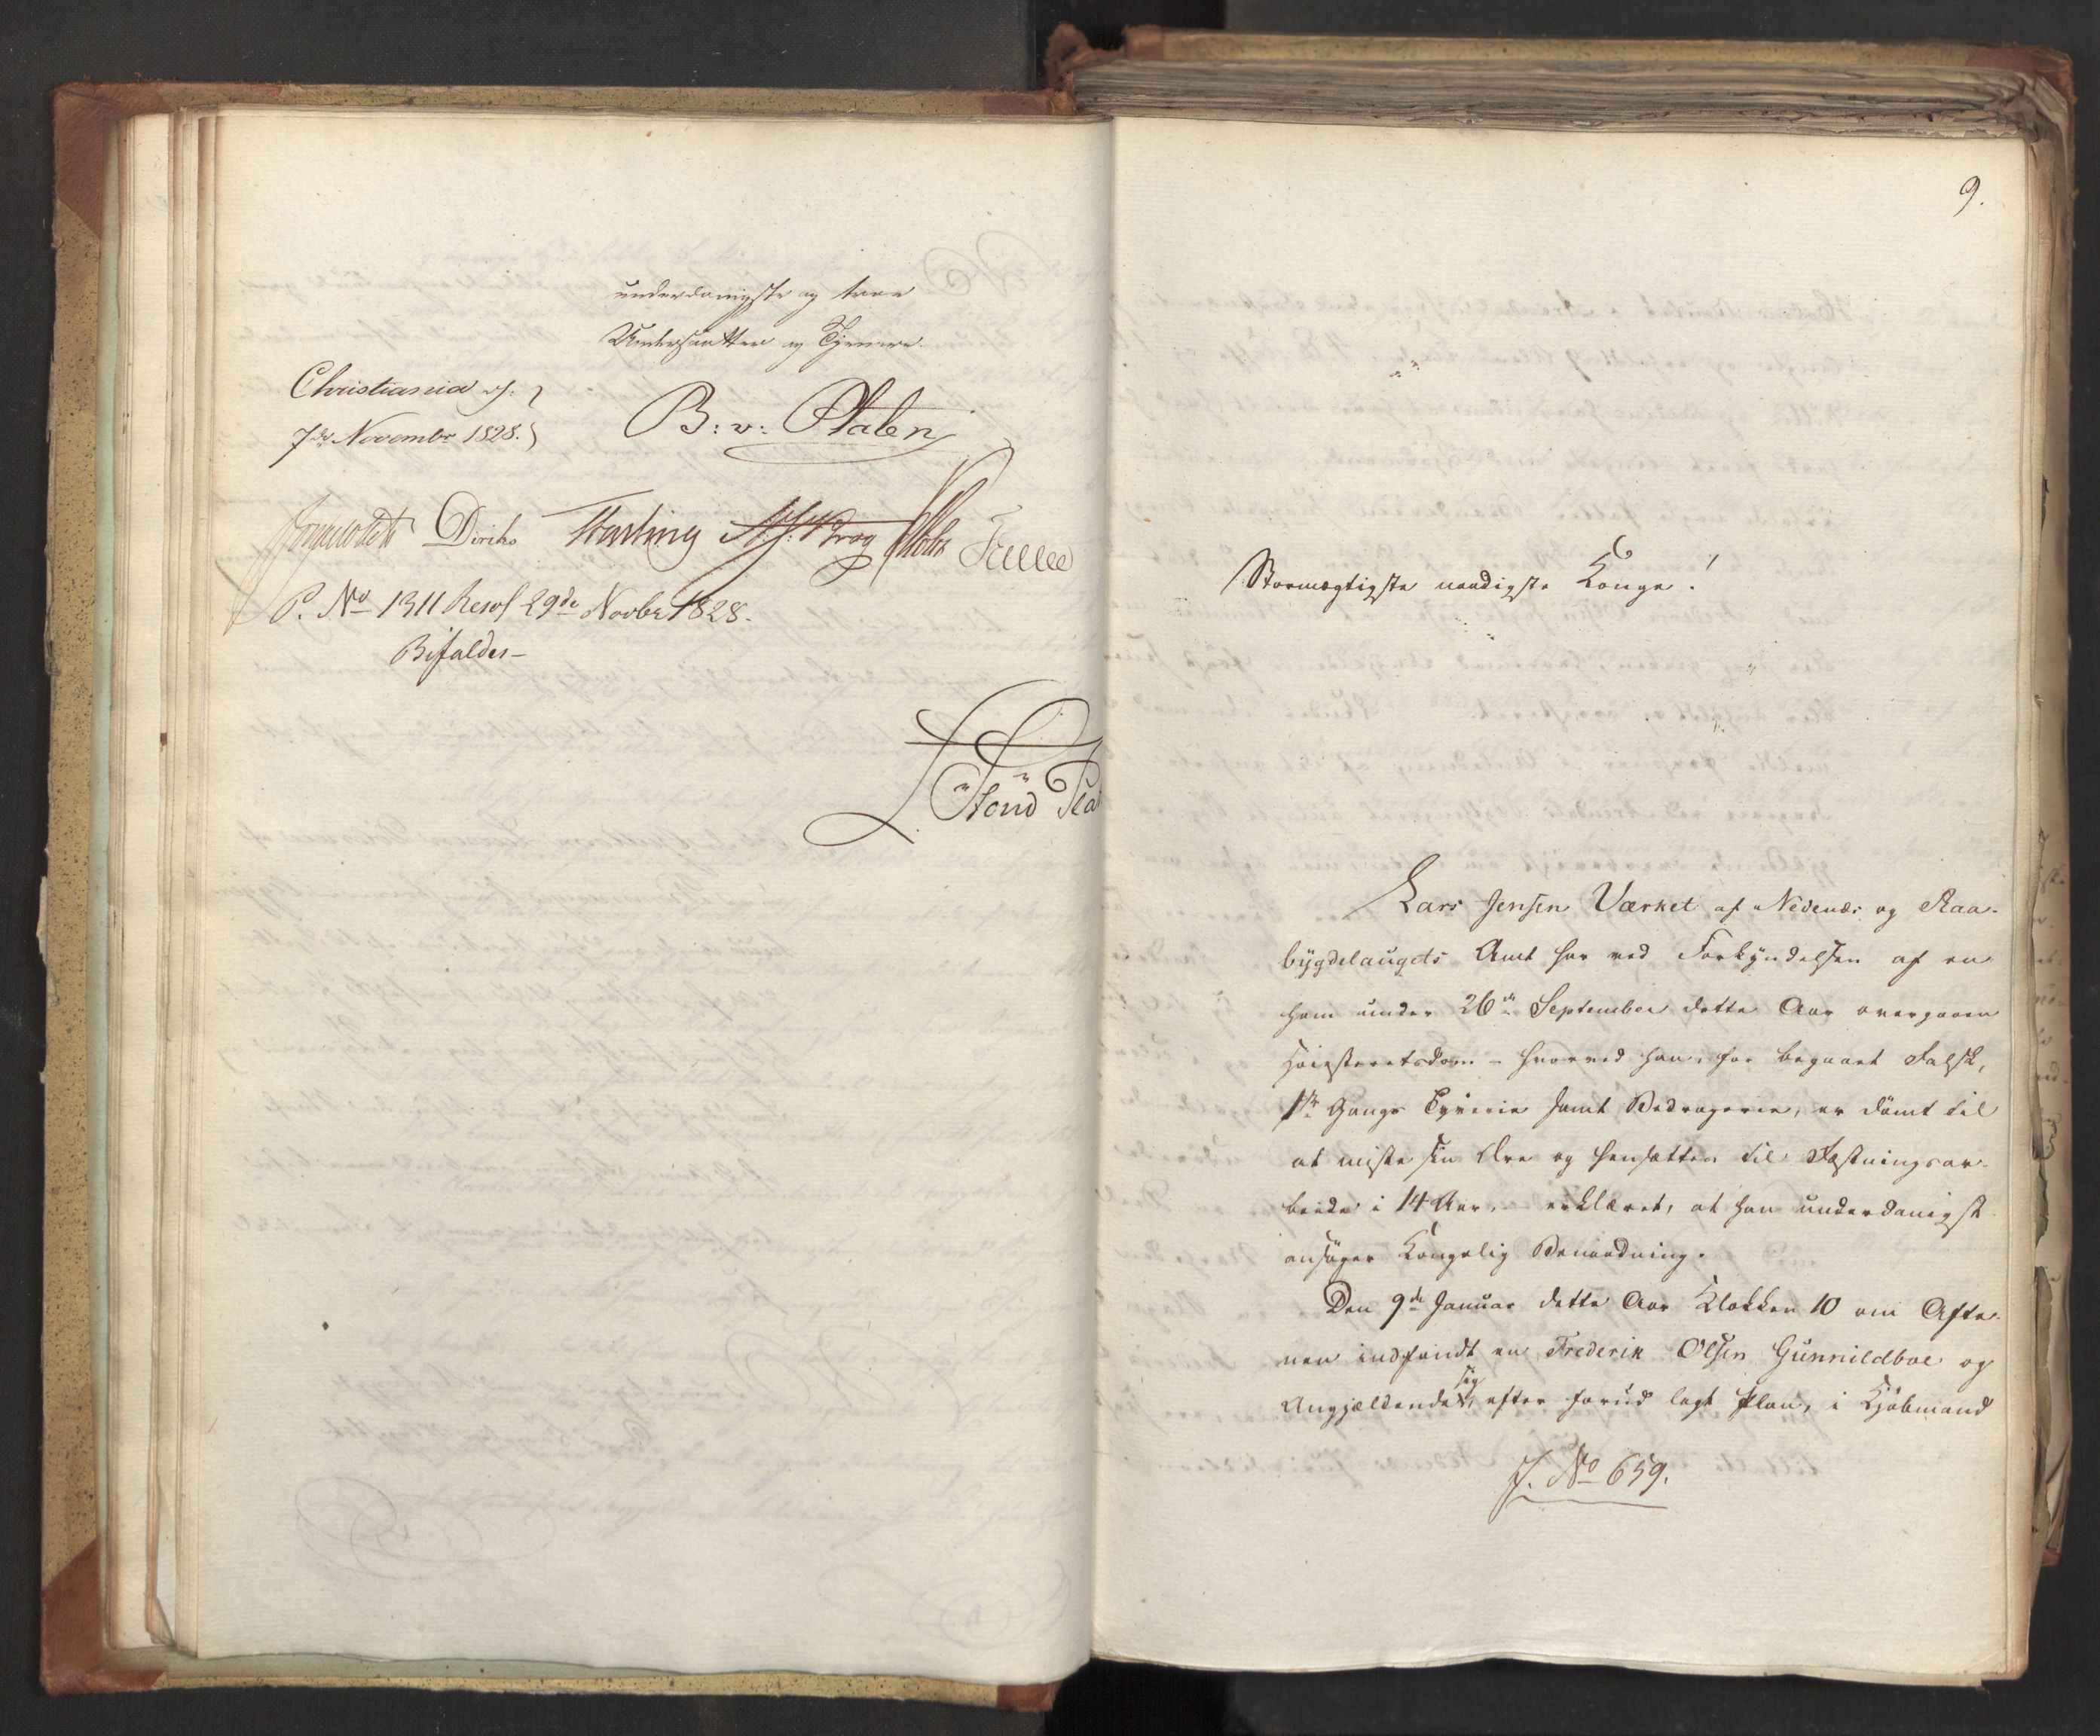 underdanigste og troe
Undersaatter og Tjenere.
Christiania d:
7de Novembr 1828.
B: v: Platen
Diriks
P. No 1311 Resol 29de Novbr 1828.
Bifaldes –
9.
Stormægtigste naadigste Konge!
Lars Jensen Værket af Nedenæs og Raa-
bygdelaugets Amt har ved Forkyndelsen af en
ham under 26de September dette Aar overgaaen
Høiesteretsdom – hvorved han, for begaaet Falsk,
1ste Gangs Tyverie samt Bedragerie, er dømt til
at miste sin Ære og hensættes til Fæstningsar-
beide i 14 Aar, – erklæret, at han underdanigst
ansøger Kongelig Benaadning.
Den 9de Januar dette Aar Klokken 10 om Afte-
nen indfandt en Frederik Olsen Gunnildboe og
Angjældende sig, efter forud lagt Plan, i Kjøbmand
J. No 659.